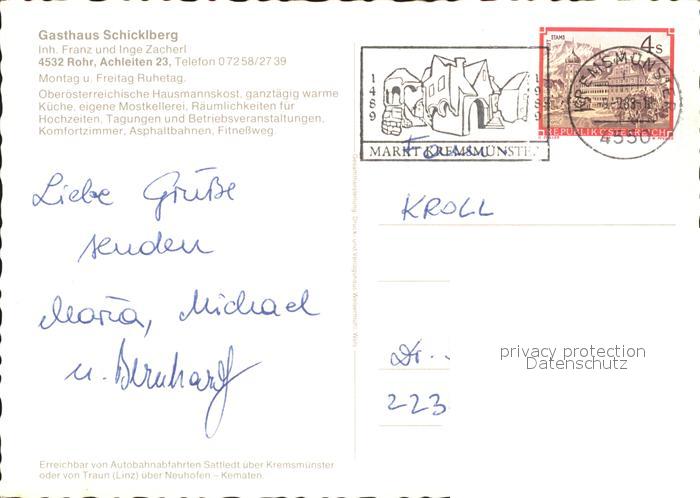 Gasthaus Schicklberg
Inh. Franz und Inge Zacherl
4532 Rohr, Achleiten 23, Telefon 07258/2739
Montag u. Freitag Ruhetag.
Oberösterreichische Hausmannskost, ganztägig warme
Küche, eigene Mostkellerei, Räumlichkeiten für
Hochzeiten, Tagungen und Betriebsveranstaltungen,
Komfortzimmer, Asphaltbahnen, Fitneßweg.
Liebe Grüße
senden
Maria, Michael
u. Bernhard
Erreichbar von Autobahnabfahrten Sattledt über Kremsmünster
oder von Traun (Linz) über Neuhofen – Kematen.
1489
MARKT KREMSMÜNSTER
STAMS
4 S
REPUBLIK ÖSTERREICH
KREMSMÜNSTER
4550
KROLL
Dr..
223
privacy protection
Datenschutz